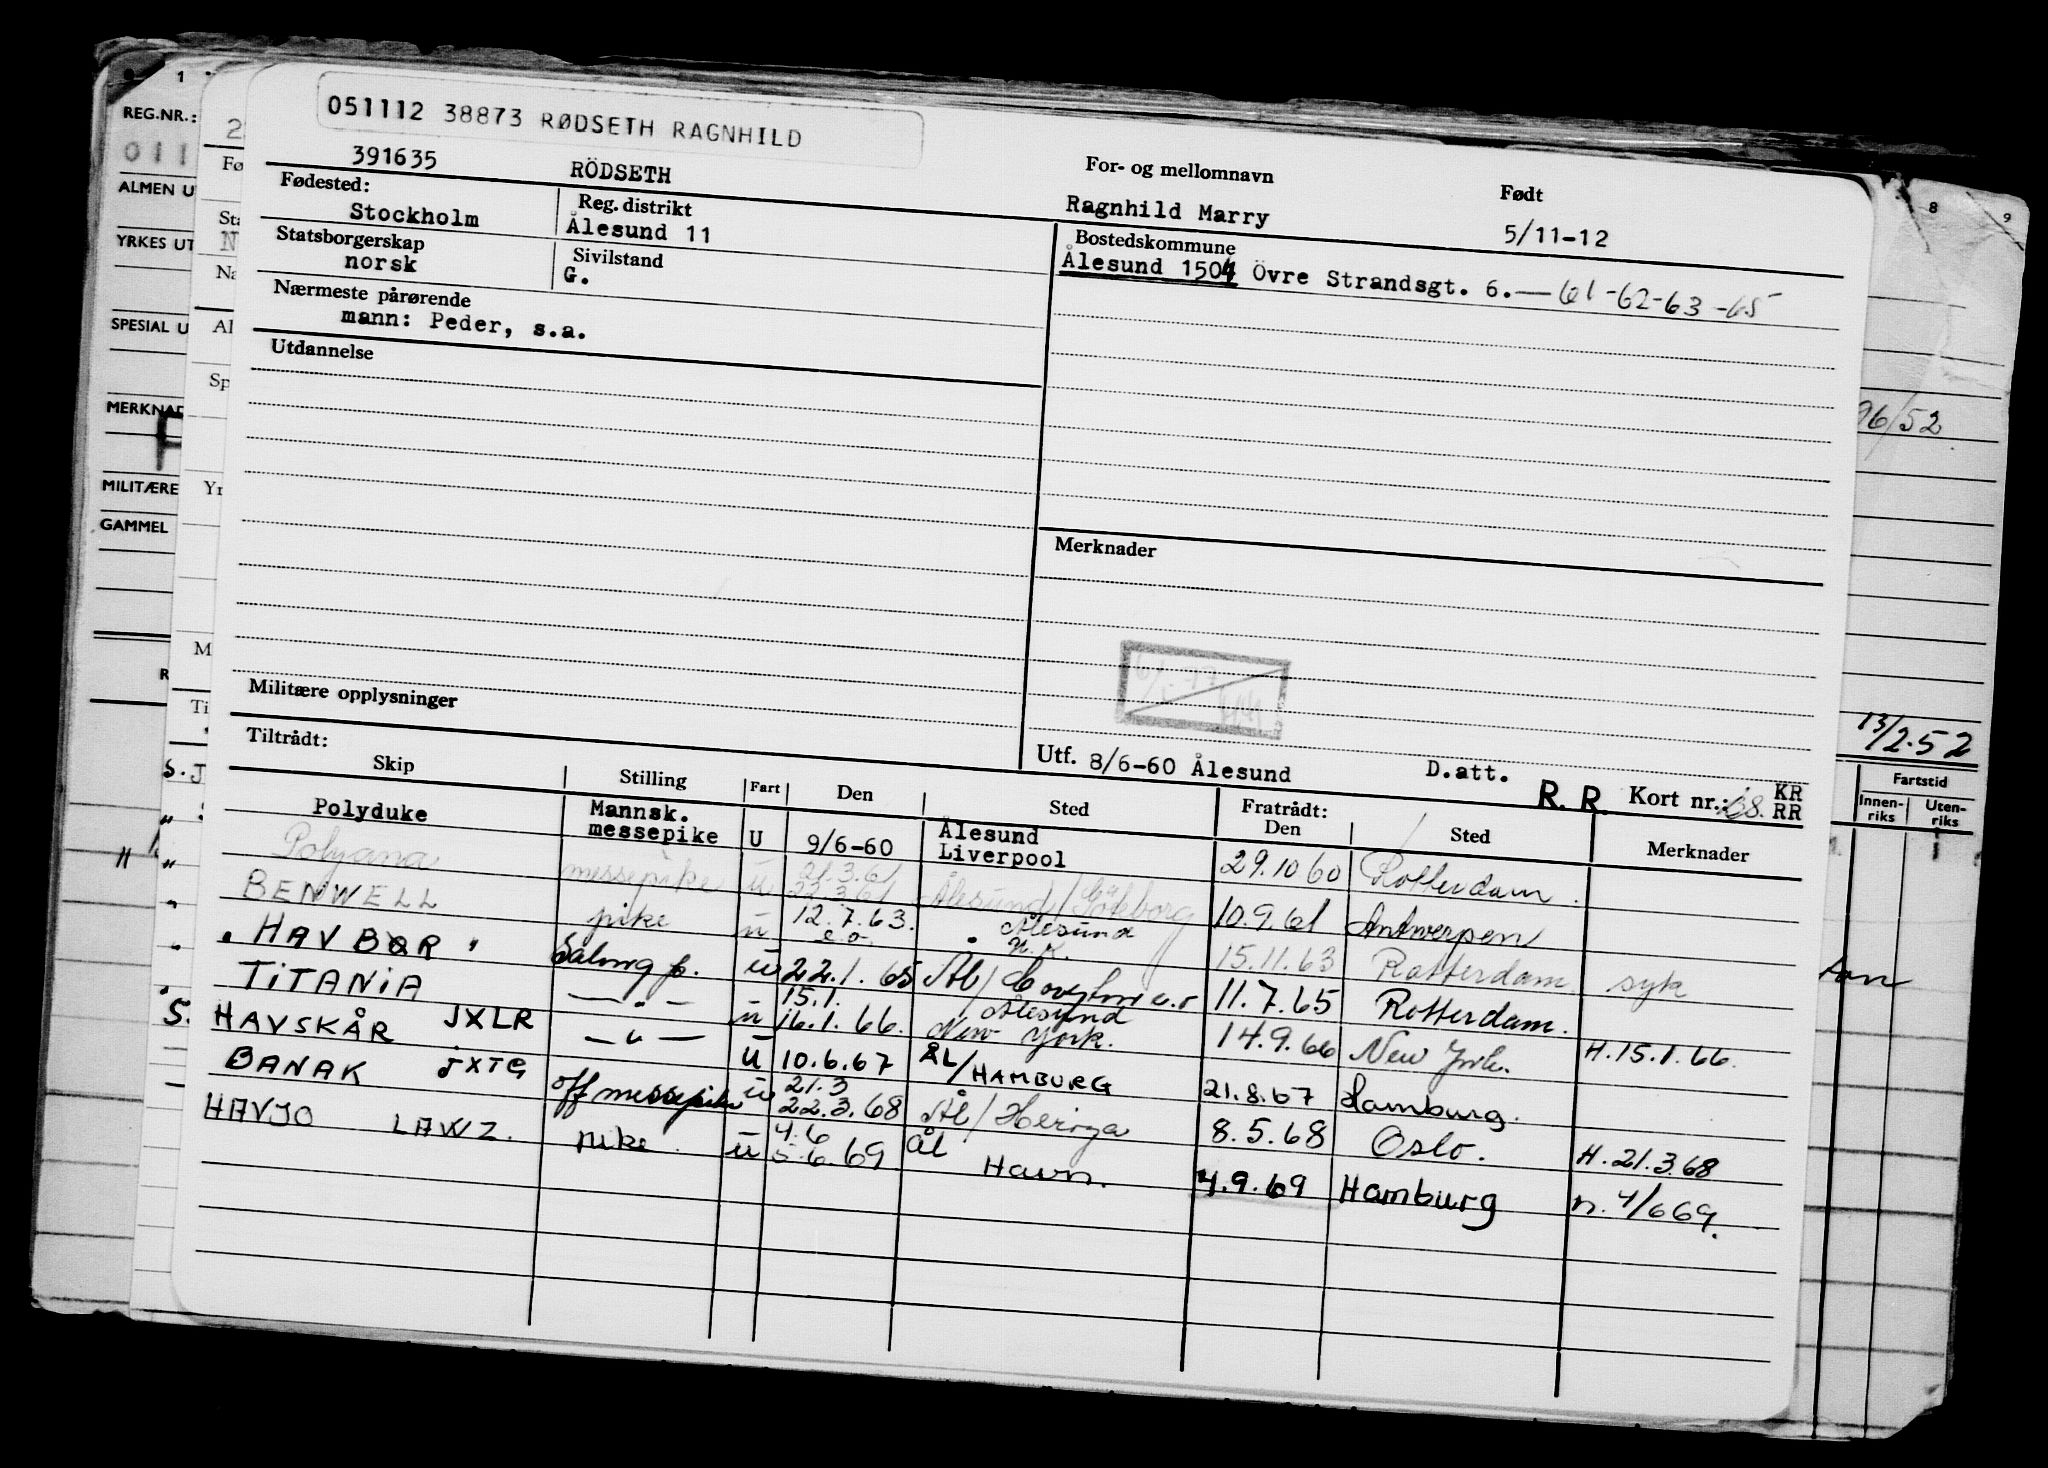 051112 38873 RØDSETH RAGNHILD
391635 RÖDSETH
For- og mellomnavn Født
Ragnhild Marry 5/11-12
Fødested: Reg. distrikt
Stockholm Ålesund 11
Statsborgerskap Sivilstand
norsk G.
Bostedskommune
Ålesund 1504 Övre Strandsgt. 6. — 61-62-63-65
Nærmeste pårørende
mann: Peder, s.a.
Utdannelse
Merknader
Militære opplysninger
Utf. 8/6-60 Ålesund D.att. R. R. Kort nr.: KR RR
Tiltrådt: Fratrådt:
Skip Stilling Fart Den Sted Den Sted Merknader
Polyduke Mannsk. messepike U 9/6-60 Ålesund Liverpool 29.10 60 Rotterdam
Polyana messepike u 21.3.61 22.3.61 Ålesund/Göteborg 10.9.61 Antwerpen
BENWELL pike u 12.7.63. e.o. Ålesund U.K. 15.11.63 Rotterdam syk
"HAVBØR" Salong p. u 22.1.65 Ål/ 11.7.65 Rotterdam.
TITANIA — " — u 15.1. 16.1.66. Ålesund New York. 14.9.66 New York. H.15.1.66.
HAVSKÅR JXLR — " — u 10.6.67 ÅL/HAMBURG 21.8.67 Hamburg.
BANAK JXTG off messepike u 21.3 22.3.68 Ål/Herøya 8.5.68 Oslo. H.21.3.68
HAVJO LAWZ. pike. u 4.6 5.6.69 ÅL Havn. 4.9.69 Hamburg n. 4/6 69.
REG.NR.:
ALMEN U
YRKES UT
SPESIAL U
MERKNAD
MILITÆRE
GAMMEL
96/52
13/2.52
Fartstid
Innen-riks Uten-riks